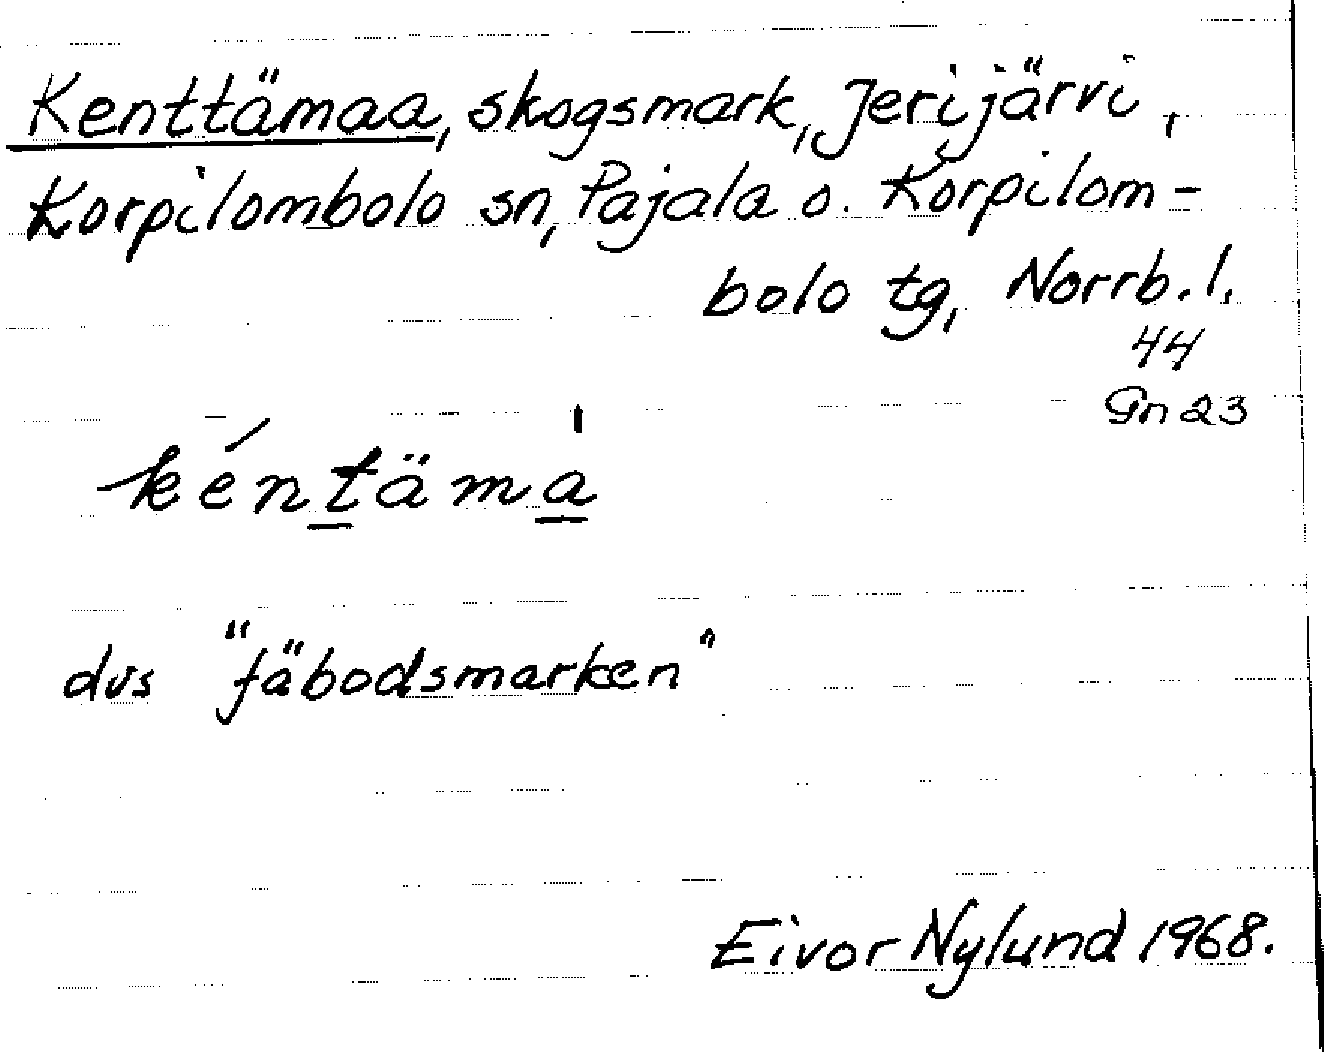 Kenttämaa, skogsmark, Jerijärvi,
Korpilombolo sn, Pajala o. Korpilom-
bolo tg, Norrb. l.
44
Gn 23
kéntämà
dvs "fäbodsmarken"
Eivor Nylund 1968.